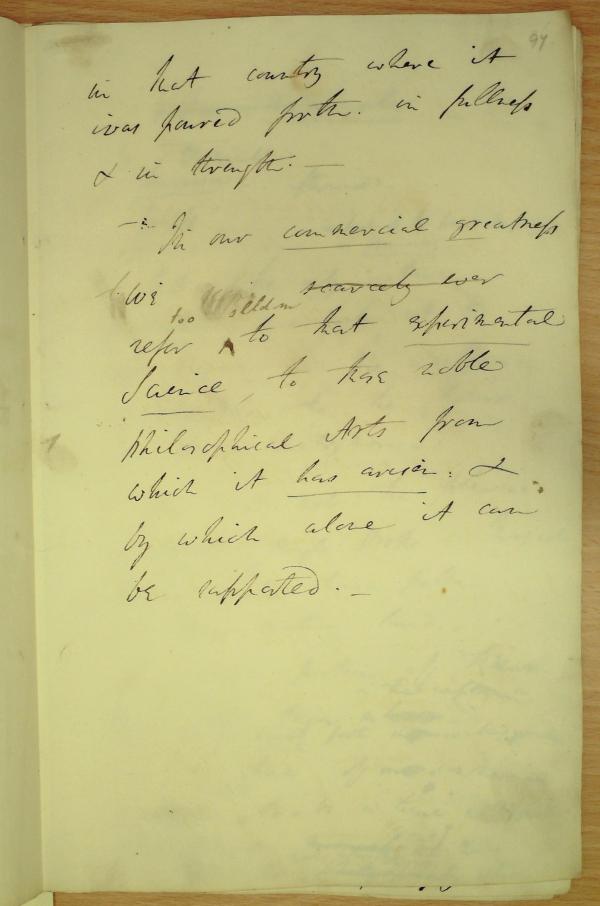 97
in that country where it
was poured forth. in fullness
& in strength. —
— In our commercial greatness
we scarcely ever
too selldom
refer to that experimental
Science, to those noble
philosophical Arts from
which it has arisen. &
by which alone it can
be supported. —